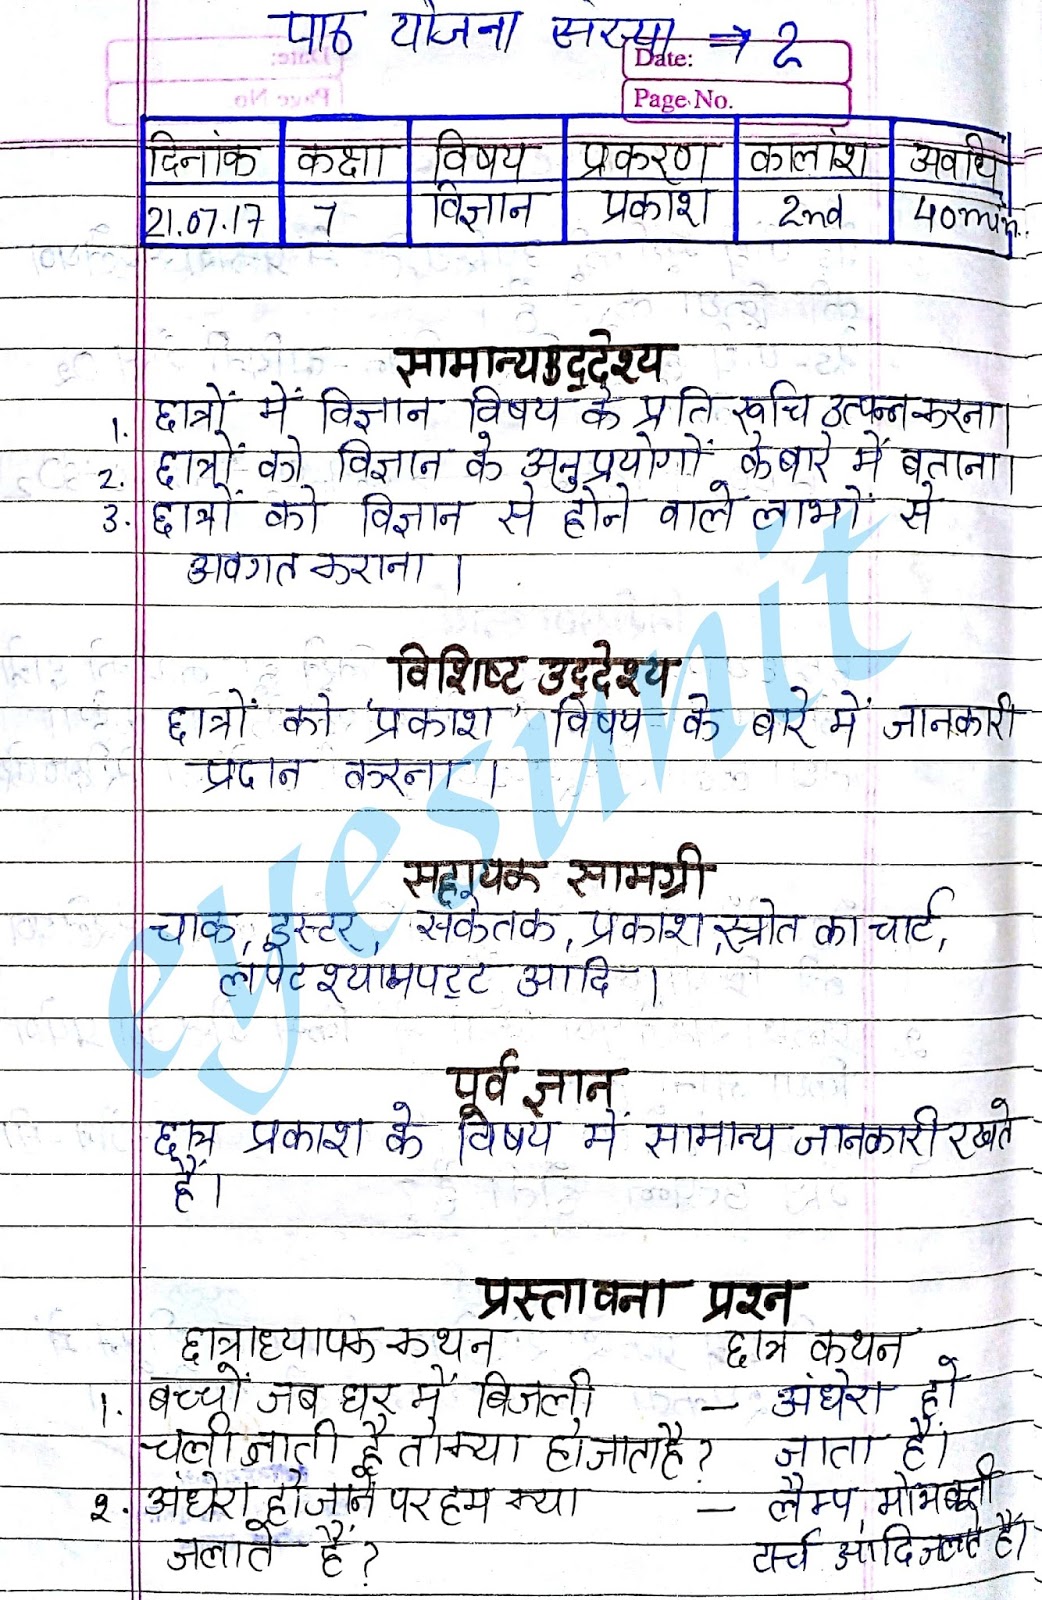 पाठ योजना संख्या → 2
Date:
Page No.
दिनांक कक्षा विषय प्रकरण कालांश अवधि
21.07.17 7 विज्ञान प्रकाश 2nd 40min.
सामान्य उद्देश्य
1. छात्रों में विज्ञान विषय के प्रति रूचि उत्पन्न करना।
2. छात्रों को विज्ञान के अनुप्रयोगों के बारे में बताना।
3. छात्रों को विज्ञान से होने वाले लाभों से
अवगत कराना ।
विशिष्ट उद्देश्य
छात्रों को 'प्रकाश' विषय के बारे में जानकारी
प्रदान करना ।
सहायक सामग्री
चाक, डस्टर, संकेतक, प्रकाश स्त्रोत का चार्ट,
लपेट श्यामपट्ट आदि ।
पूर्व ज्ञान
छात्र प्रकाश के विषय में सामान्य जानकारी रखते
हैं।
प्रस्तावना प्रश्न
छात्राध्यापक कथन छात्र कथन
1. बच्चों जब घर में बिजली – अंधेरा हो
चली जाती है तो क्या हो जाता है? जाता है।
2. अंधेरा हो जाने पर हम क्या – लैम्प, मोमबत्ती
जलाते हैं? टार्च आदि जलाते हैं।
eyesunit